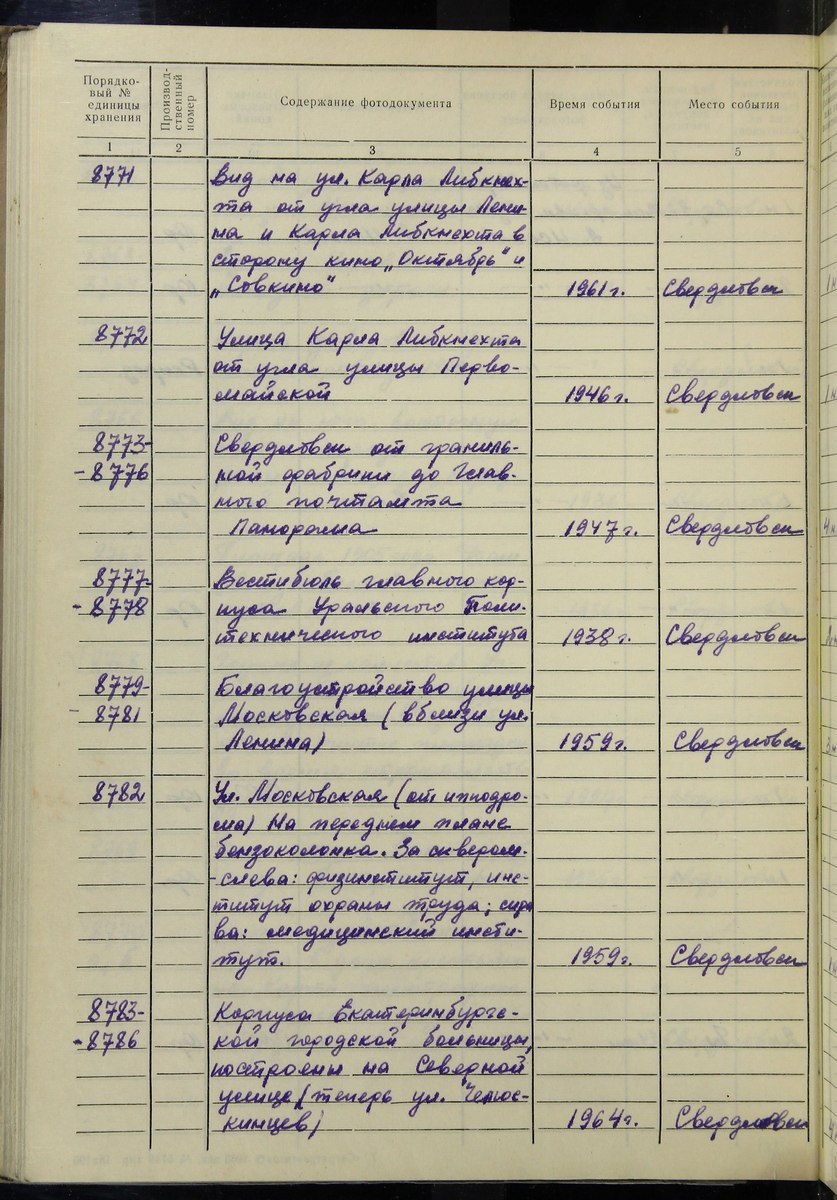 Порядко-
вый №
единицы
хранения
Производ-
ственный
номер
Содержание фотодокумента
Время события
Место события
1 2 3 4 5
8771 Вид на ул. Карла Либкнех-
та от угла улицы Лени-
на и Карла Либкнехта в
сторону кино „Октябрь" и
„Совкино" 1961 г. Свердловск
8772 Улица Карла Либкнехта
от угла улицы Перво-
майской 1946 г. Свердловск
8773- Свердловск от граниль-
-8776 ной фабрики до Глав-
ного почтамта
Панорама 1947 г. Свердловск
8777- Вестибюль главного кор-
-8778 пуса Уральского Поли-
технического института 1938 г. Свердловск
8779- Благоустройство улицы
-8781 Московская (вблизи ул.
Ленина) 1959 г. Свердловск
8782 Ул. Московская (от ипподро-
ма) На переднем плане
бензоколонка. За сквером
-слева: физинститут, инс-
титут охраны труда; спра
ва: медицинский инсти-
тут. 1959 г. Свердловск
8783- Корпуса Екатеринбургс-
-8786 кой городской больницы,
построены на Северной
улице (теперь ул. Челюс-
кинцев) 1964 г. Свердловск